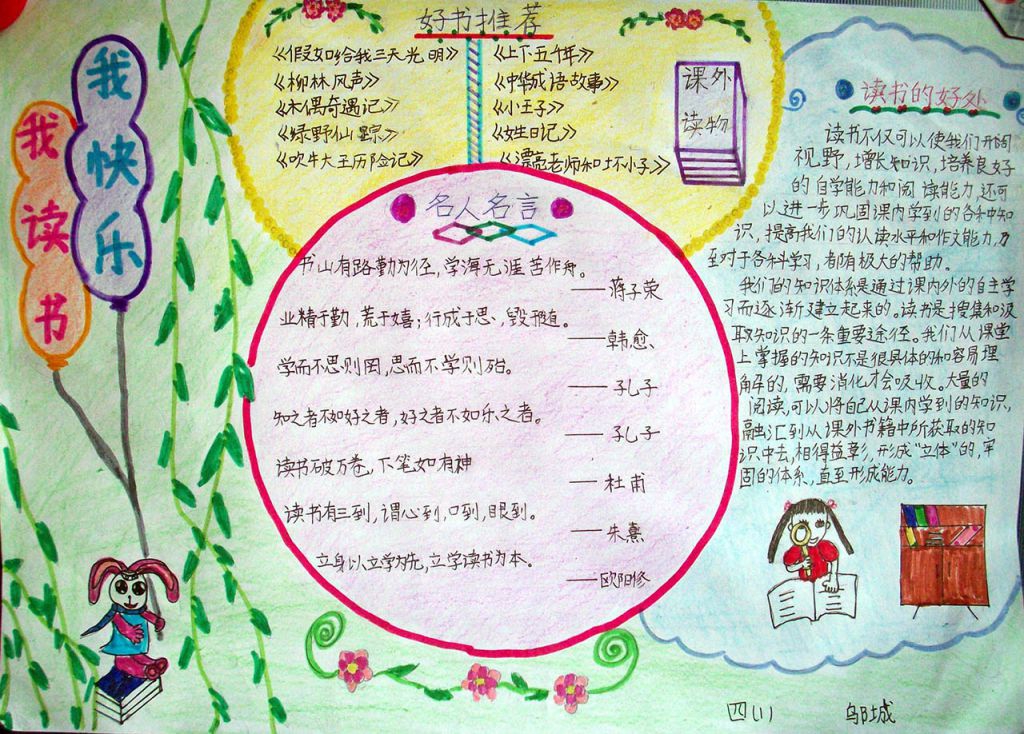 我读书
我快乐
好书推荐
《假如给我三天光明》
《柳林风声》
《木偶奇遇记》
《绿野仙踪》
《吹牛大王历险记》
《上下五千年》
《中华成语故事》
《小王子》
《女生日记》
《漂亮老师和坏小子》
课外
读物
名人名言
书山有路勤为径,学海无涯苦作舟。
——蒋子荣
业精于勤,荒于嬉;行成于思,毁于随。
——韩愈、
学而不思则罔,思而不学则殆。
——孔子
知之者不如好之者,好之者不如乐之者。
——孔子
读书破万卷,下笔如有神
——杜甫
读书有三到,谓心到,口到,眼到。
——朱熹
立身以立学为先,立学读书为本。
——欧阳修
读书的好处
读书不仅可以使我们开阔
视野,增长知识,培养良好
的自学能力和阅读能力,还可
以进一步巩固课内学到的各种知
识,提高我们的认读水平和作文能力,乃
至对于各科学习,都有极大的帮助。
我们的知识体系是通过课内外的自主学
习而逐渐建立起来的。读书是搜集和汲
取知识的一条重要途径。我们从课堂
上掌握的知识不是很具体的和容易理
解的,需要消化才会吸收。大量的
阅读,可以将自己从课内学到的知识,
融汇到从课外书籍中所获取的知
识中去,相得益彰,形成“立体”的,牢
固的体系,直至形成能力。
四(1) 邬城